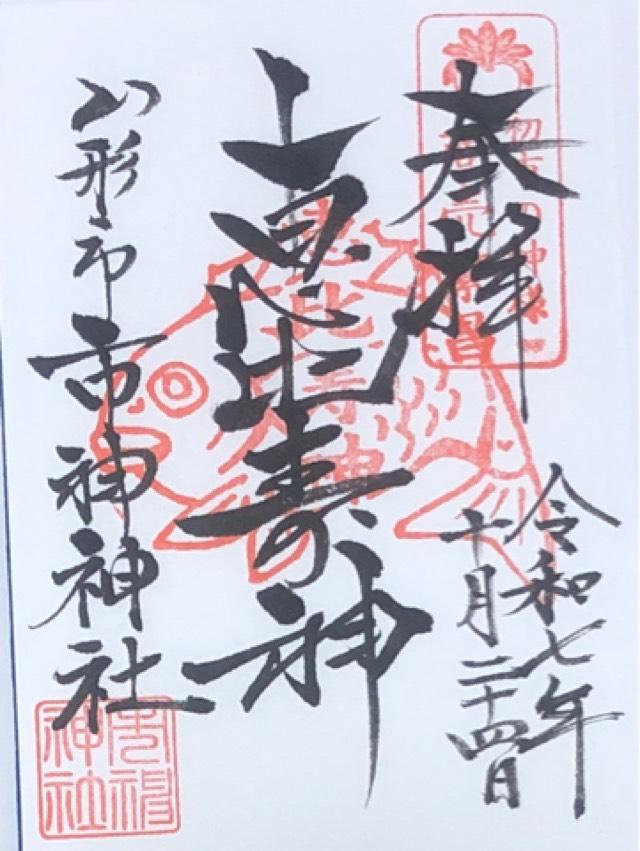 奉拝
恵比寿神
恵比寿神
令和七年
十月二十四日
山形市市神神社
市神
神社